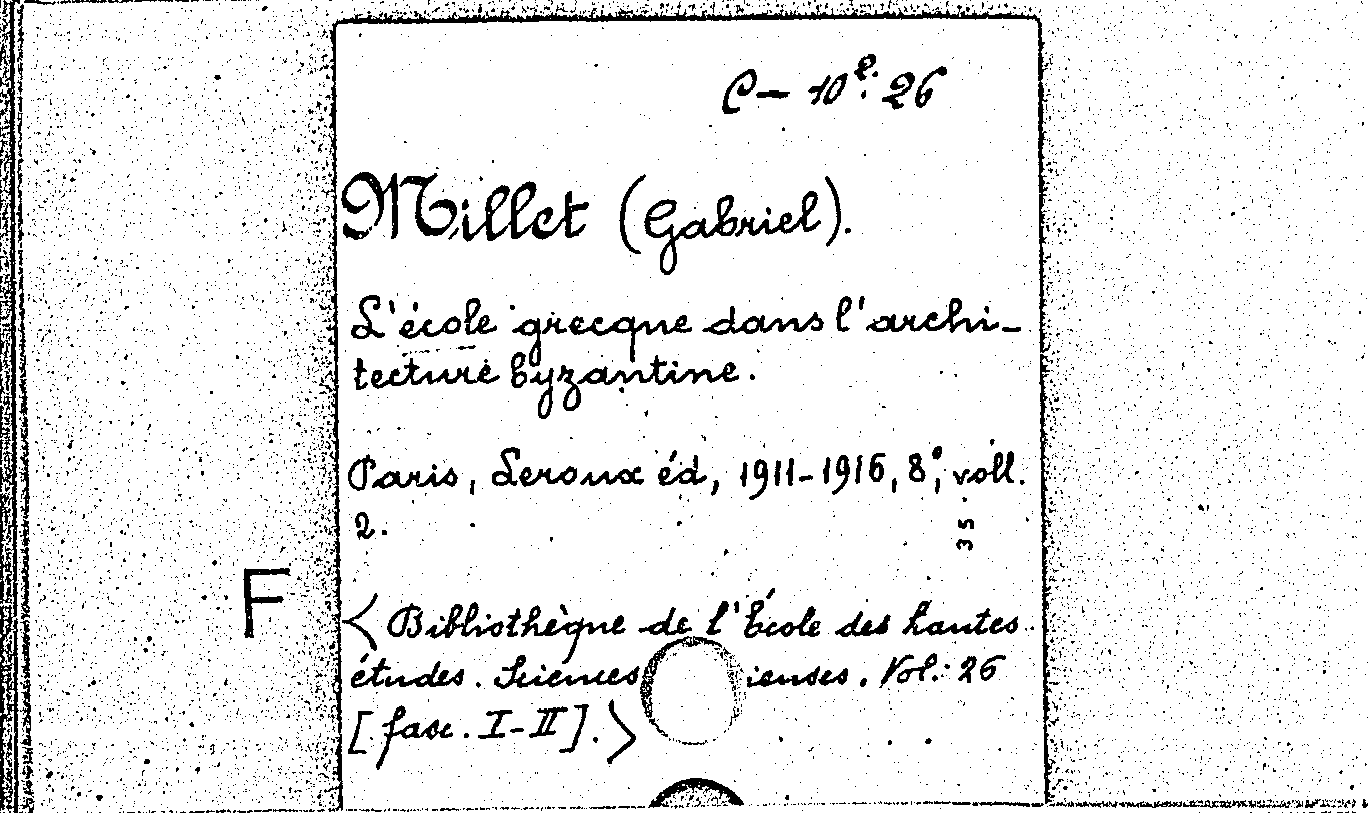 C - 10 e. 26
Millet (Gabriel).
L'école grecque dans l'archi-
tecture byzantine.
Paris, Leroux éd, 1911-1916, 8°, voll.
2.
35
F
< Bibliothèque de l'École des hautes
études. Sciences ienses. Vol: 26
[fasc. I-II]. >